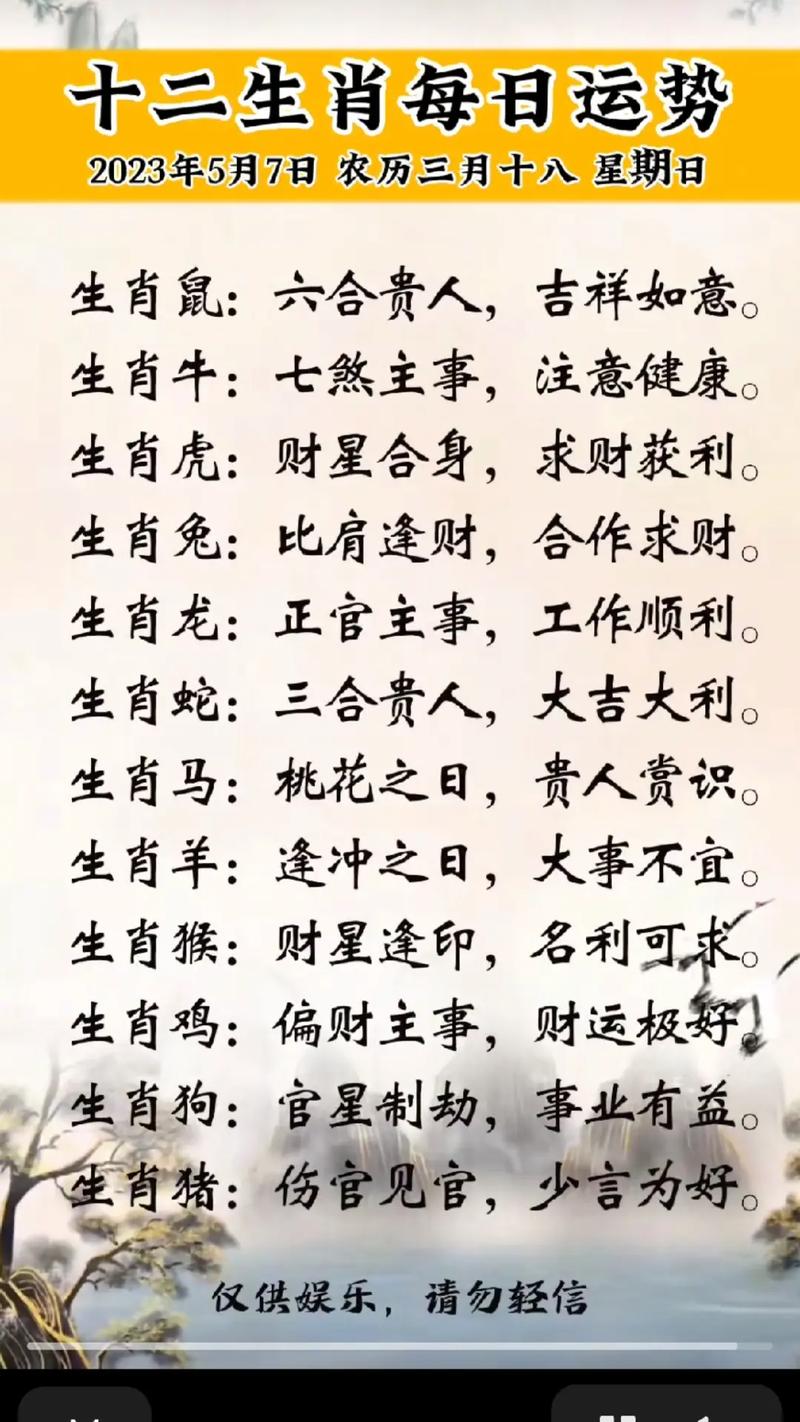 十二生肖每日运势
2023年5月7日 农历三月十八 星期日
生肖鼠：六合贵人，吉祥如意。
生肖牛：七煞主事，注意健康。
生肖虎：财星合身，求财获利。
生肖兔：比肩逢财，合作求财。
生肖龙：正官主事，工作顺利。
生肖蛇：三合贵人，大吉大利。
生肖马：桃花之日，贵人赏识。
生肖羊：逢冲之日，大事不宜。
生肖猴：财星逢印，名利可求。
生肖鸡：偏财主事，财运极好。
生肖狗：官星制劫，事业有益。
生肖猪：伤官见官，少言为好。
仅供娱乐，请勿轻信